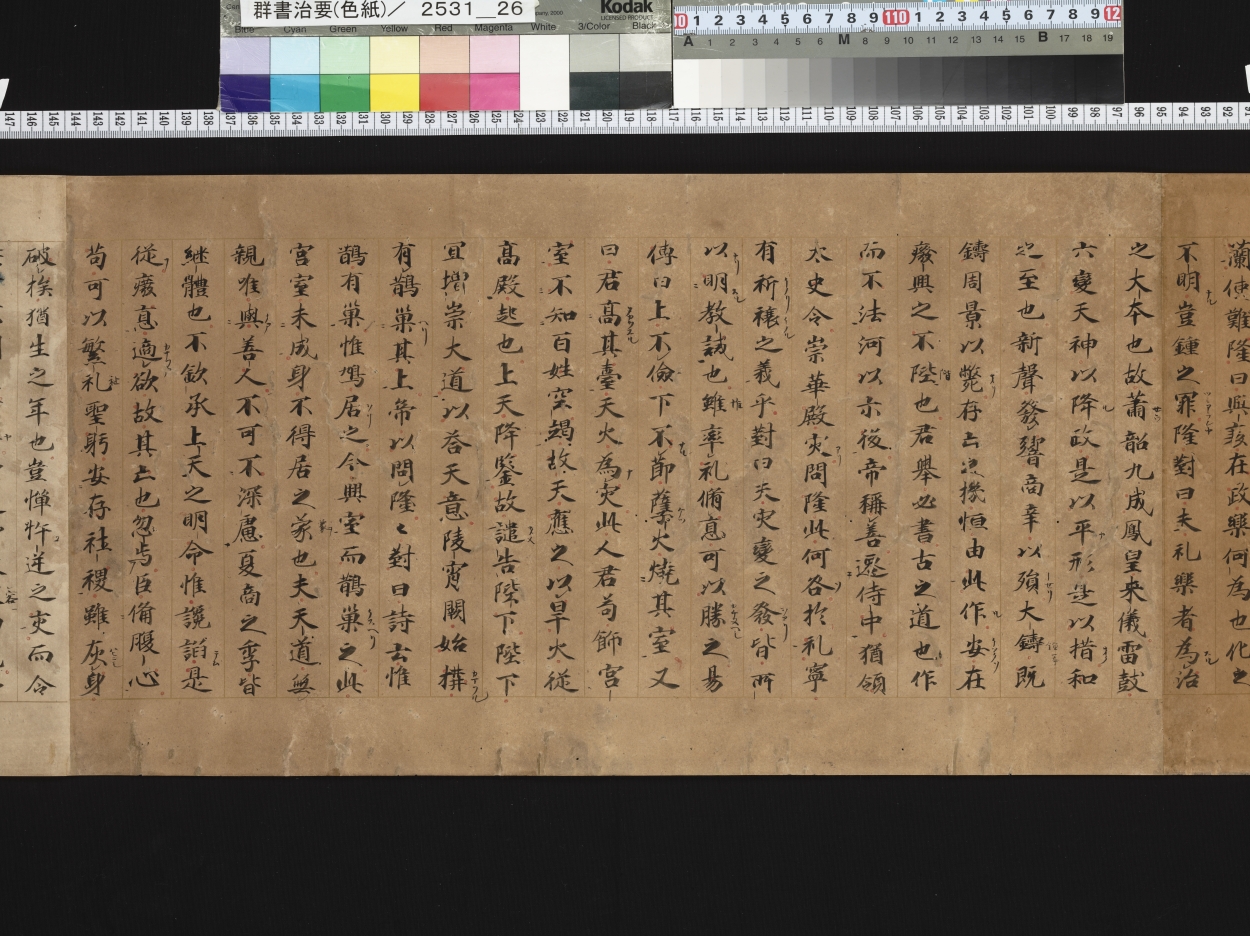 群書治要(色紙)／ 2531__26
Kodak
LICENSED PRODUCT
Blue Cyan Green Yellow Red Magenta White 3/Color Black
蘭使難隆曰興衰在政樂何為也化之
不明豈鍾之罪隆對曰夫礼樂者為治
之大本也故蕭韶九成鳳皇来儀雷鼓
六變天神以降政是以平形是以措和
之至也新聲發響商辛以殞大鑄既
鑄周景以斃存亡之機恒由此作安在
癈興之不陛也君舉必書古之道也作
而不法何以示後帝稱善遷侍中猶領
太史令崇華殿灾問隆此何咎於礼寧
有祈禳之義乎對曰夫灾變之發皆所
以明教誡也雖率礼脩息可以勝之易
傳曰上不儉下不節孽火燒其室又
曰君髙其臺天火為灾此人君苟飾宮
室不知百姓空竭故天應之以旱火従
髙殿起也上天降鑒故譴告陛下陛下
宜増崇大道以荅天意陵霄闕始搆
有鵲巢其上帝以問隆〻對曰詩云惟
鵲有巢惟鳩居之今興室而鵲巢之此
宮室未成身不得居之象也夫天道無
親唯與善人不可不深慮夏商之季皆
継體也不欽承上天之明命惟讒諂是
従癈息適欲故其亡也忽焉臣備腹心
苟可以繁礼聖躬安存社稷雖灰身
破挨猶生之年也豈憚忤逆之灾而令